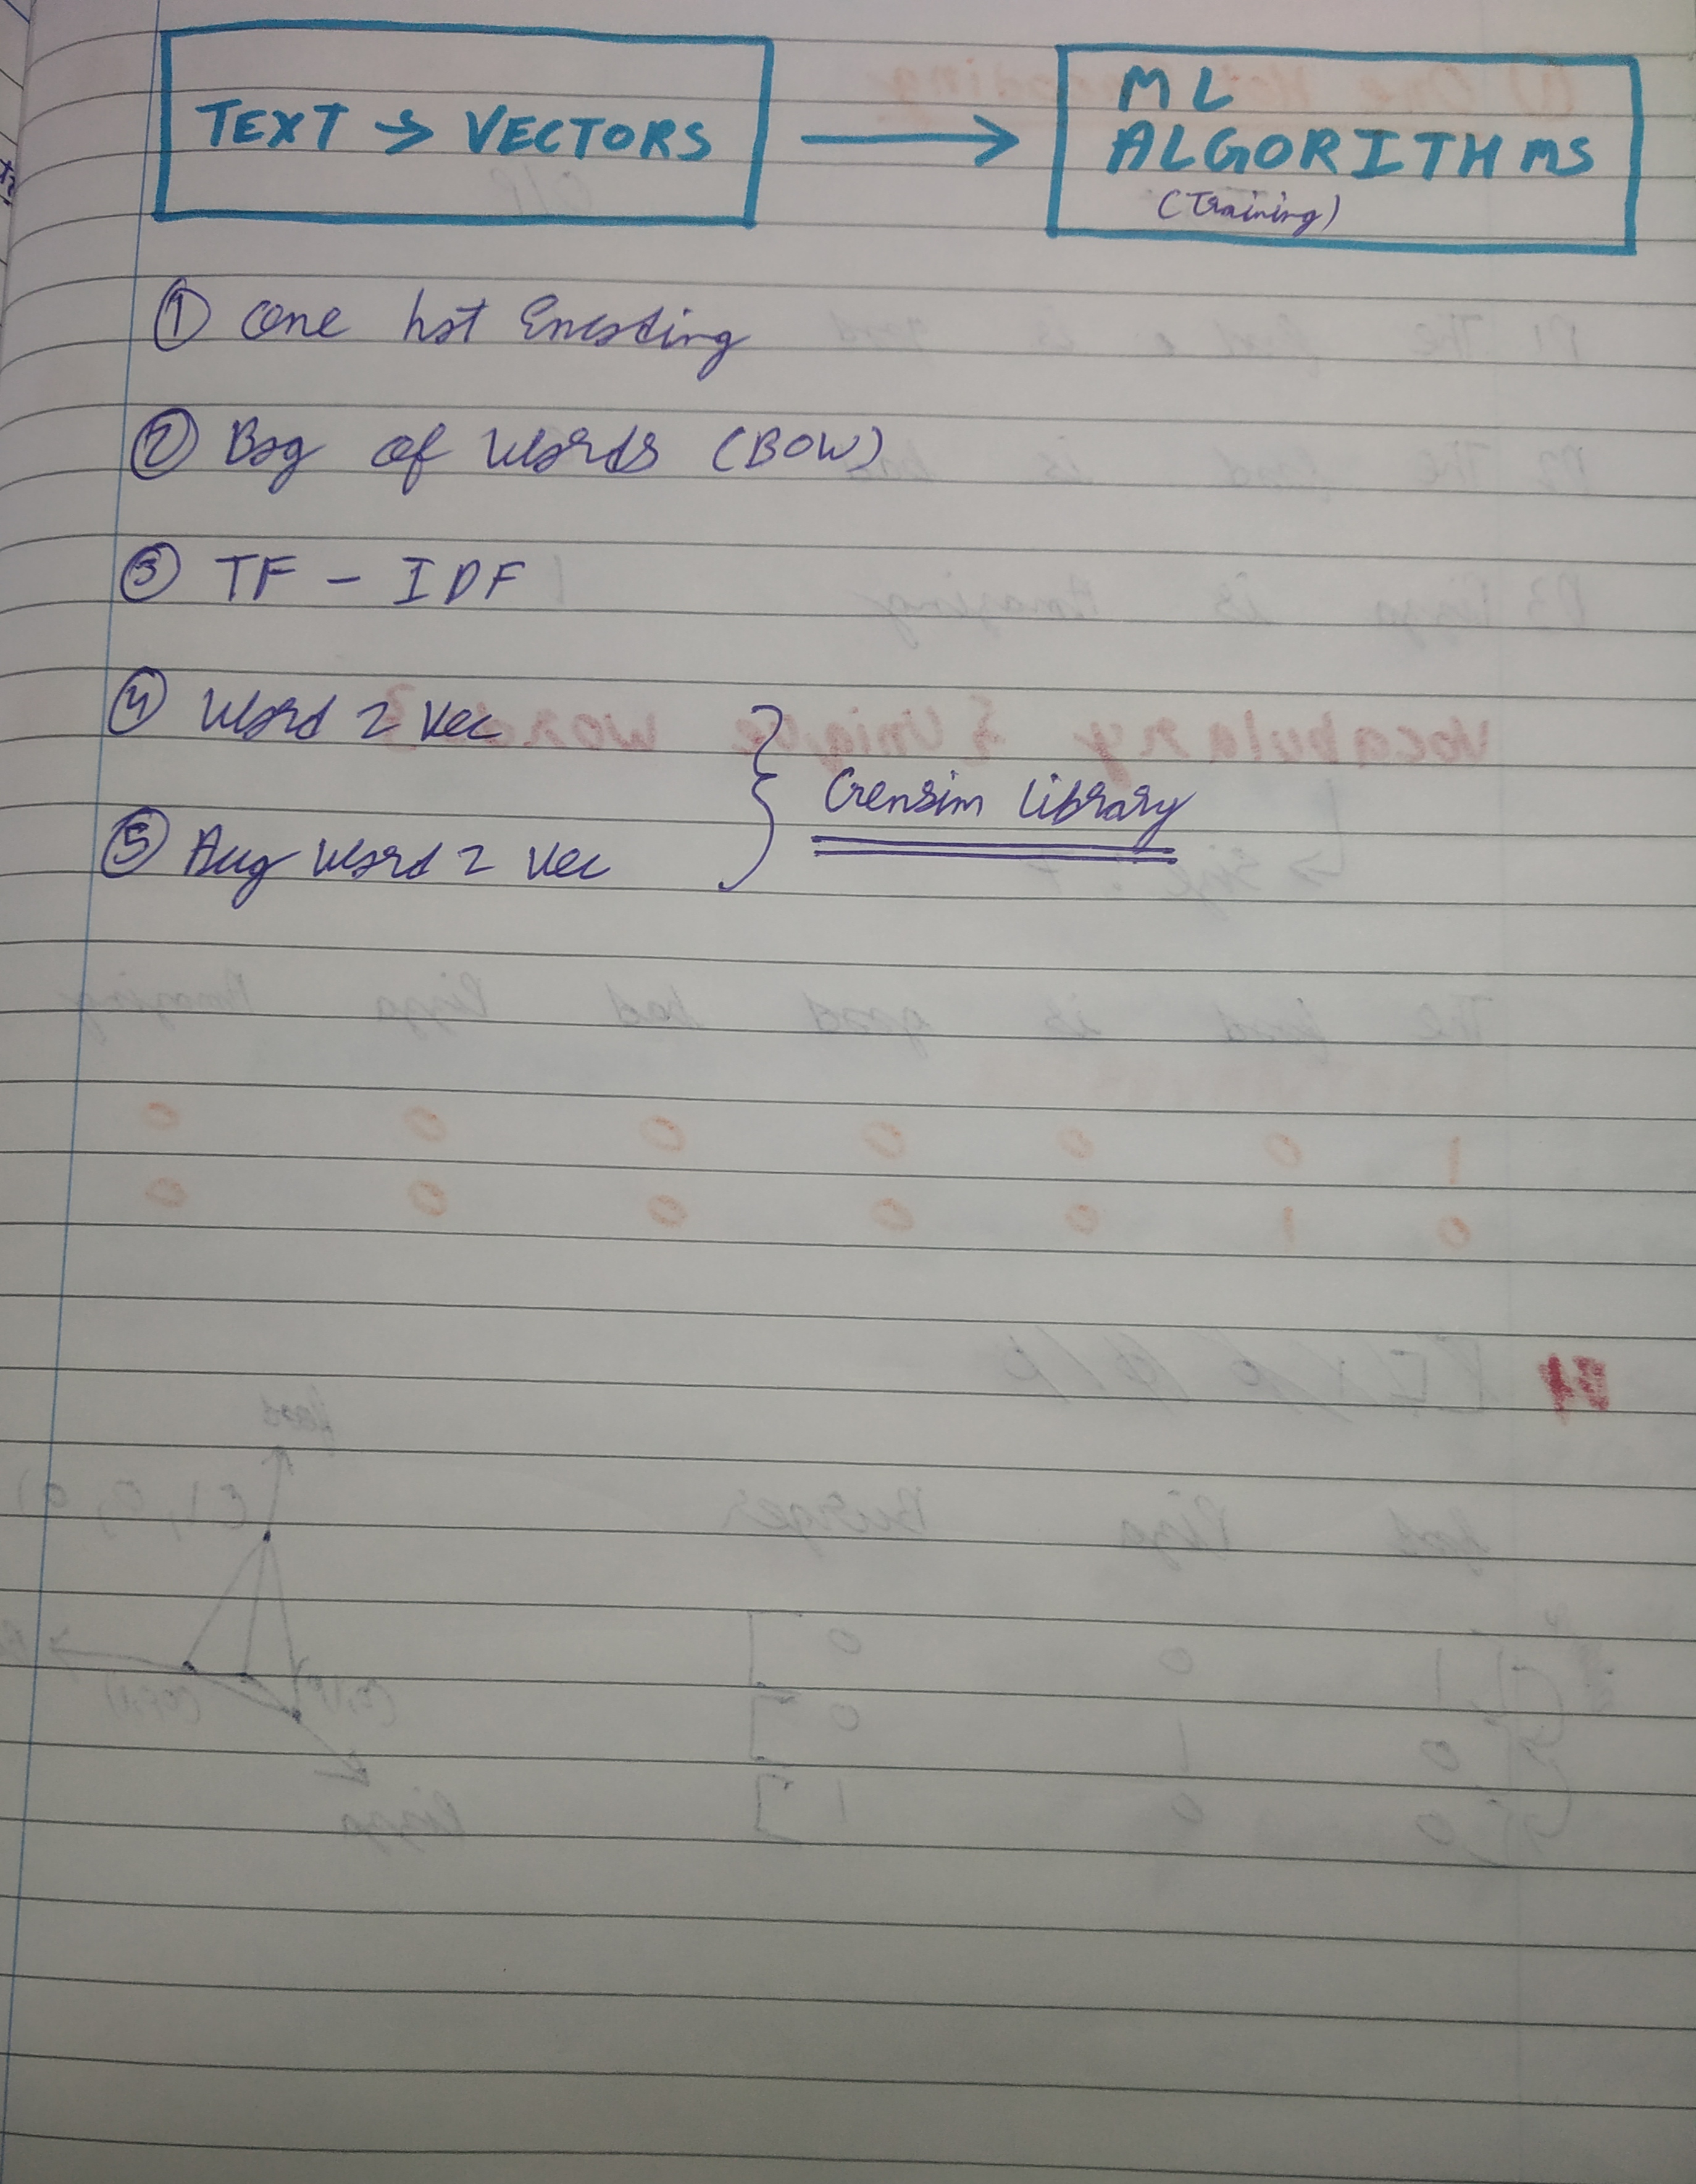 TEXT → VECTORS → ML ALGORITHMS
(Training)
① One hot Encoding
② Bag of Words (BOW)
③ TF - IDF
④ Word 2 Vec
⑤ Aug Word 2 Vec
Gensim Library